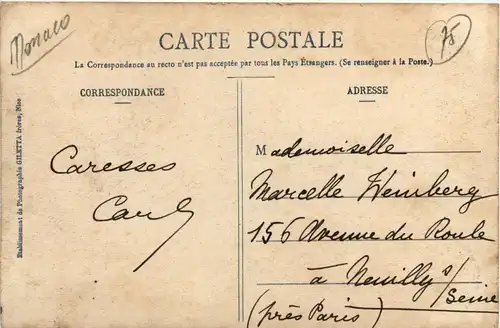 Monaco
75
CARTE POSTALE
La Correspondance au recto n'est pas acceptée par tous les Pays Étrangers. (Se renseigner à la Poste.)
CORRESPONDANCE
ADRESSE
Etablissement de Photographie GILETTA frères, Nice
Caresses
Carl
Mademoiselle
Marcelle Heinberg
156 Avenue du Roule
à Neuilly s/
Seine
(près Paris)